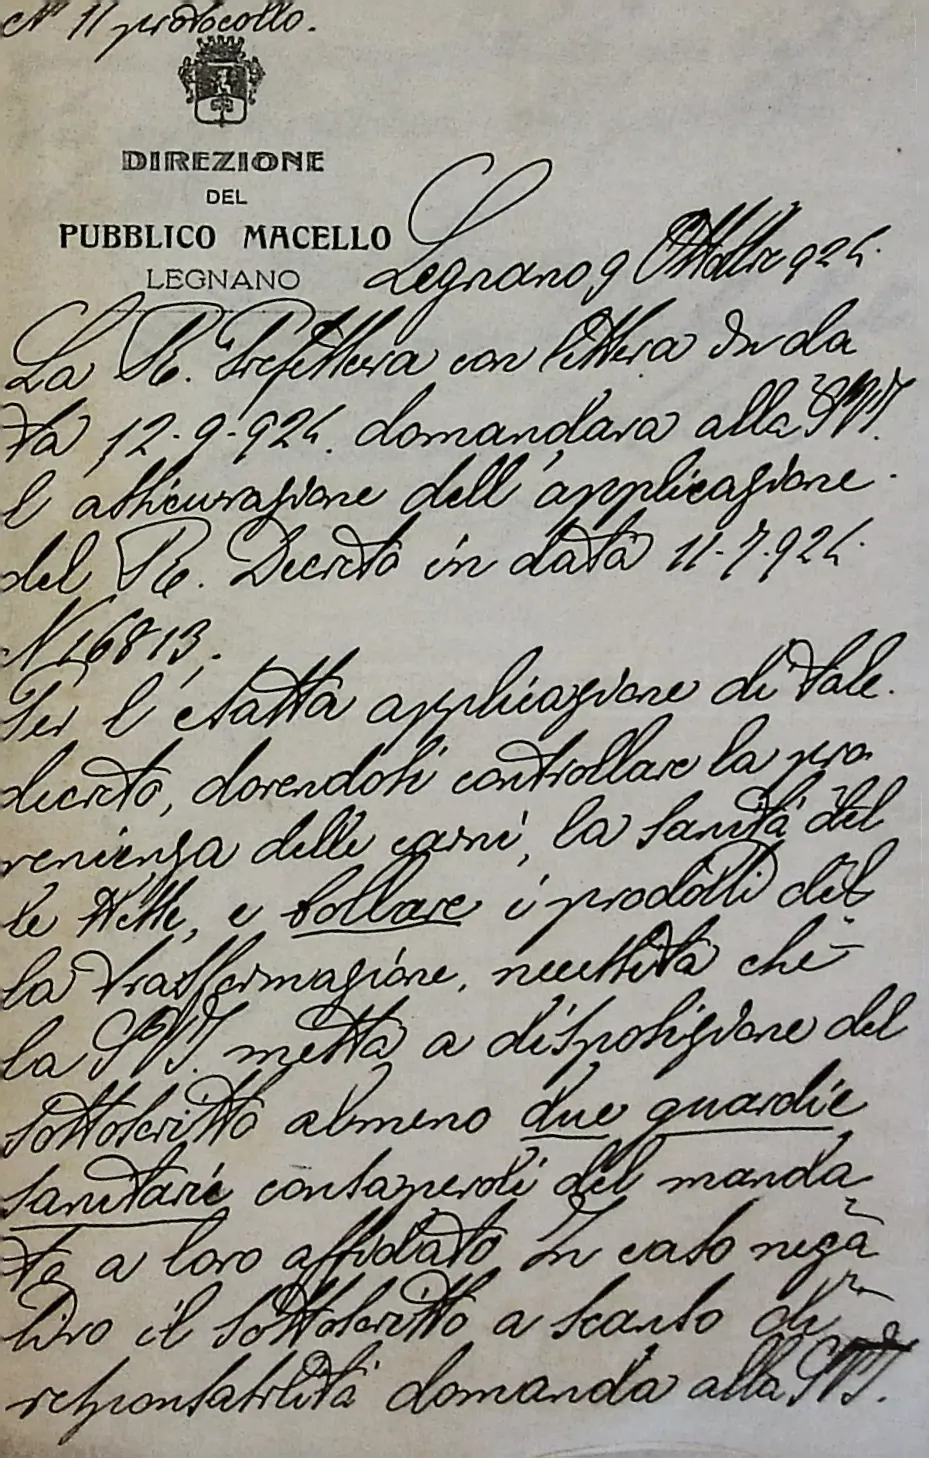 N° 11 protocollo.
DIREZIONE
DEL
PUBBLICO MACELLO
LEGNANO
Legnano 9 Ottobre 924.
La R. Prefettura con lettera in da
ta 12-9-924. domandava alla S.V.I.
l'assicurazione dell'applicazione
del R. Decreto in data 11-7-924.
N 16813.
Per l'esatta applicazione di tale
decreto, dovendosi controllare la pro
venienza delle carni, la sanità del
le stesse, e bollare i prodotti del
la trasformazione, necessita che
la S.V.I. metta a disposizione del
sottoscritto almeno due guardie
sanitarie consapevoli del manda
to a loro affidato. In caso nega
tivo il sottoscritto a scanso di
responsabilità domanda alla S.V.I.